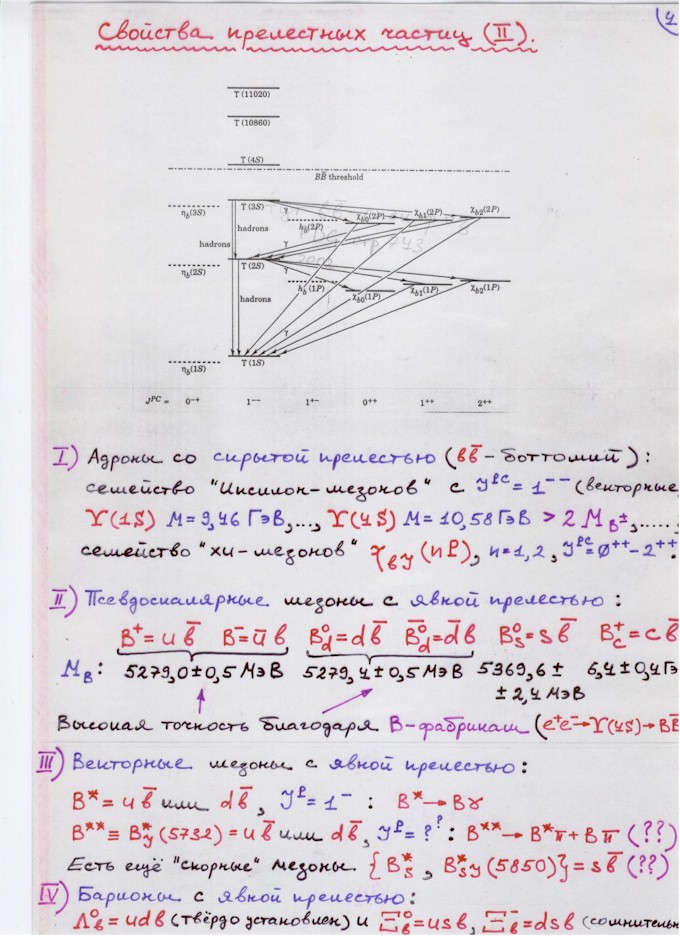 4
Свойства прелестных частиц (II).
Υ(11020)
Υ(10860)
Υ(4S)
BB̅ threshold
Υ(3S)
η_b(3S)
χ_b0(2P)
χ_b1(2P)
χ_b2(2P)
h_b(2P)
γ
hadrons
hadrons
γ
Υ(2S)
η_b(2S)
γ
hadrons
h_b(1P)
χ_b0(1P)
χ_b1(1P)
χ_b2(1P)
γ
Υ(1S)
η_b(1S)
J^PC = 0⁻⁺ 1⁻⁻ 1⁺⁻ 0⁺⁺ 1⁺⁺ 2⁺⁺
I) Адроны со скрытой прелестью (bb̅-боттомий):
семейство "Ипсилон-мезонов" с J^PC = 1⁻⁻ (векторные
Υ(1S) M=9,46 ГэВ,..., Υ(4S) M=10,58 ГэВ > 2 M_B±,.....,
семейство "хи-мезонов" χ_bJ(nP), n=1,2, J^PC=0⁺⁺-2⁺⁺.
II) Псевдоскалярные мезоны с явной прелестью:
B⁺=ub̅ B⁻=u̅b B⁰_d=db̅ B̅⁰_d=d̅b B⁰_s=sb̅ B⁺_c=cb̅
M_B: 5279,0±0,5 МэВ 5279,4±0,5 МэВ 5369,6± 6,4±0,4 Гэ
±2,4 МэВ
Высокая точность благодаря B-фабрикам (e⁺e⁻→Υ(4S)→BB̅
III) Векторные мезоны с явной прелестью:
B*=ub̅ или db̅, J^P=1⁻ : B*→Bγ
B**≡B*_J(5732)=ub̅ или db̅, J^P=?^?: B**→B*π+Bπ (??)
Есть ещё "скорные" мезоны. {B*_s, B*_sJ(5850)}=sb̅ (??)
IV) Барионы с явной прелестью:
Λ⁰_b=udb (твёрдо установлен) и Ξ⁰_b=usb, Ξ⁻_b=dsb (сомнительн